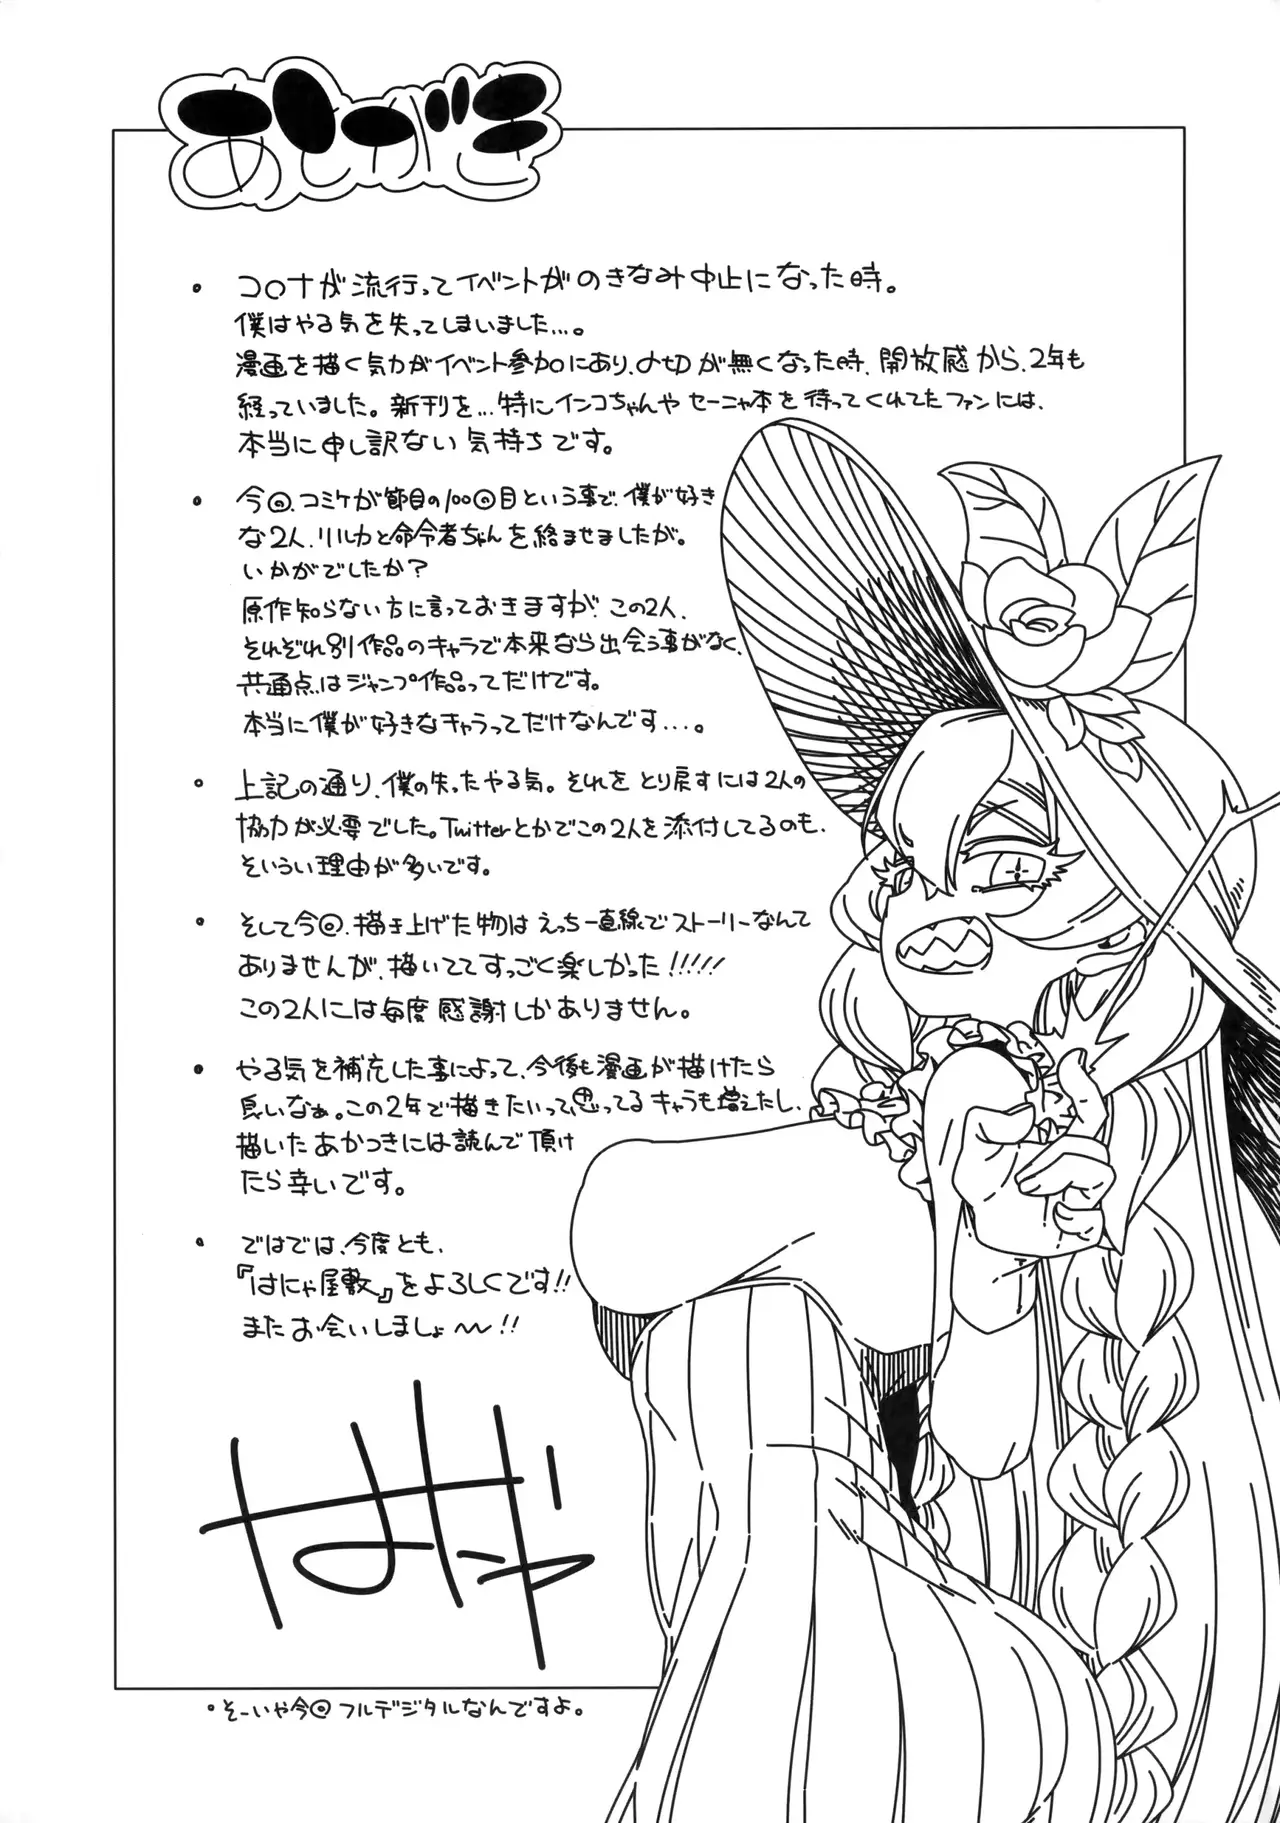 あとがき
・コロナが流行ってイベントがのきなみ中止になった時。
僕はやる気を失ってしまいました...。
漫画を描く気力がイベント参加にあり、〆切が無くなった時、開放感から、2年も
経っていました。新刊を...特にインコちゃんやセーニャ本を待ってくれてたファンには、
本当に申し訳ない気持ちです。
・今回、コミケが節目の100回目という事で、僕が好き
な2人、リルカと命令者ちゃんを絡ませましたが。
いかがでしたか?
原作知らない方に言っておきますが、この2人、
それぞれ別作品のキャラで本来なら出会う事がなく、
共通点はジャンプ作品ってだけです。
本当に僕が好きなキャラってだけなんです...。
・上記の通り、僕の失ったやる気。それをとり戻すには2人の
協力が必要でした。Twitterとかでこの2人を添付してるのも、
そいうい理由が多いです。
・そして今回、描き上げた物はえっち一直線でストーリーなんて
ありませんが、描いててすっごく楽しかった!!!!!
この2人には毎度感謝しかありません。
・やる気を補充した事によって、今後も漫画が描けたら
良いなぁ。この2年で描きたいって思ってるキャラも増えたし、
描いたあかつきには読んで頂け
たら幸いです。
・ではでは、今度とも、
『はにゃ屋敷』をよろしくです!!
またお会いしましょ〜!!
はにゃ
・そーいや今回フルデジタルなんですよ。